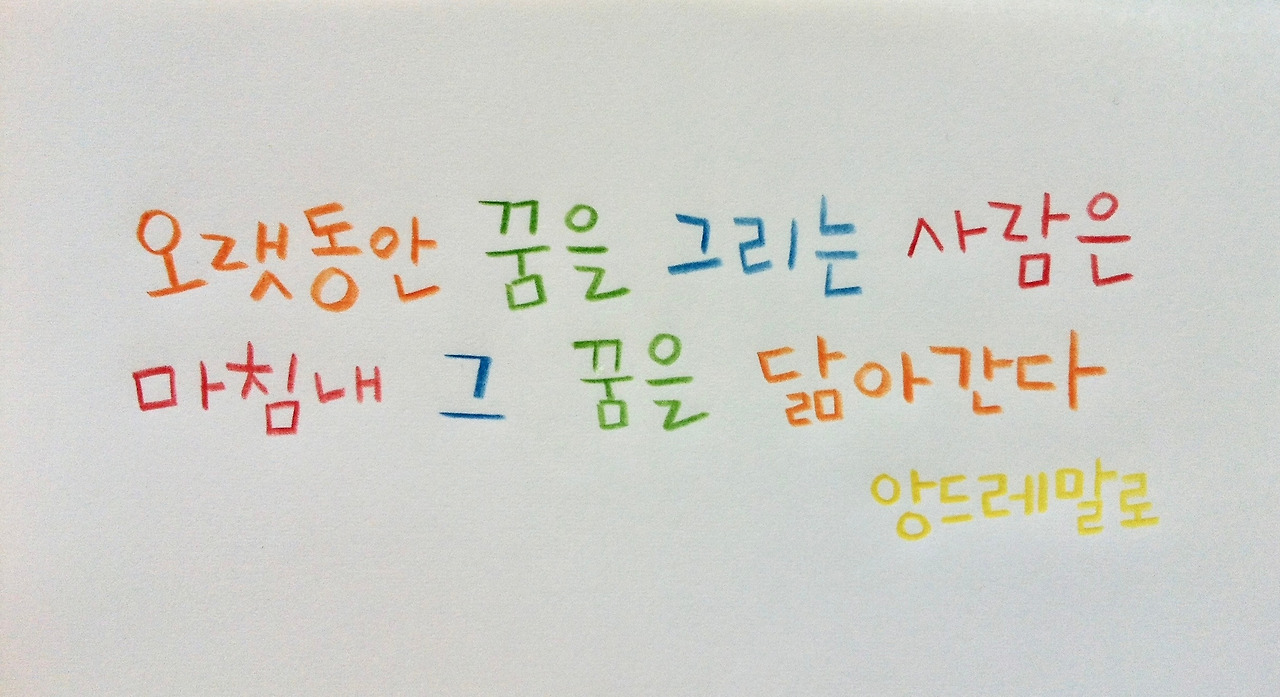 오랫동안 꿈을 그리는 사람은
마침내 그 꿈을 닮아간다
앙드레말로